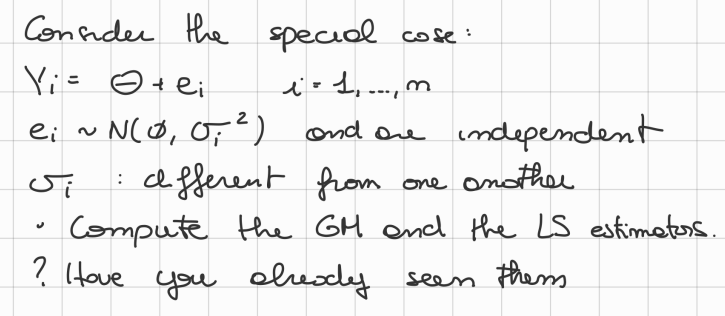 Consider the special case:
Yi = θ + ei i = 1, ..., n
ei ~ N(0, σi²) and are independent
σi : different from one another
· Compute the GM and the LS estimators.
? Have you already seen them